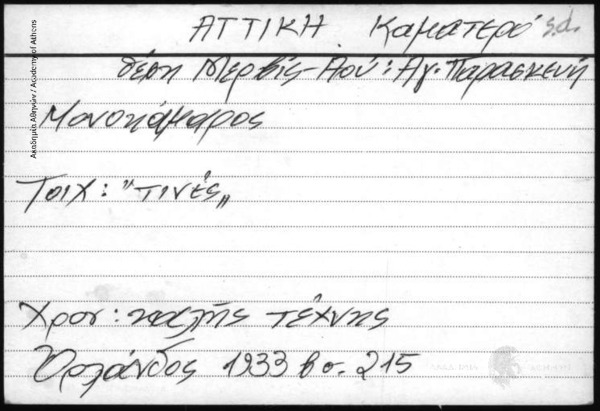 ΑΤΤΙΚΗ Καματερό s.d.
θέση Μερβίς-Λού: Αγ. Παρασκευή
Μονοκάμαρος
Τοιχ: "τινές"
Χρον: καλής τέχνης
Ορλάνδος 1933 β σ. 215
Ακαδημία Αθηνών / Academy of Athens